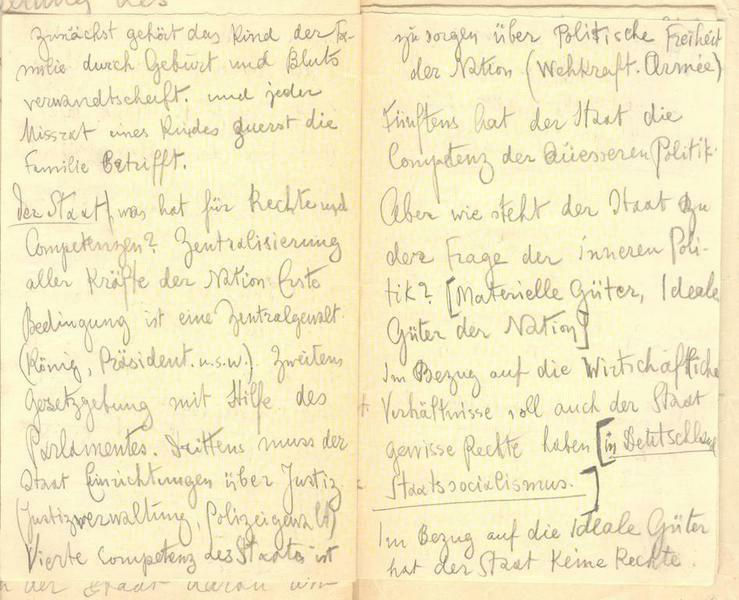 zunächst gehört das Kind der Fa-
milie durch Geburt und Bluts
verwandtscheift. und jeder
Missrat eines Kindes zuerst die
Familie betrifft.
Der Staat, was hat für Rechte und
Competenzen? Zentralisierung
aller Kräfte der Nation Erste
Bedingung ist eine Zentralgewalt.
(König, Präsident. u.s.w.). Zweitens
Gesetzgebung mit Hilfe des
Parlamentes. Drittens muss der
Staat Einrichtungen über Justiz.
(Justizverwaltung, Polizeigewalt)
Vierte Competenz des Staates ist
zu sorgen über Politische Freiheit
der Nation (Wehkraft. Armée)
Fünftens hat der Staat die
Competenz der Äüesseren Politik.
Aber wie steht der Staat zu
der Frage der inneren Poli-
tik? [Materielle Güter, Ideale
Güter der Nation]
Im Bezug auf die Wirtschaftliche
Verhältnisse soll auch der Staat
gewisse Rechte haben [in Deutschland
Staatssocialismus.]
Im Bezug auf die Ideale Güter
hat der Staat Keine Rechte.
der Staat daran